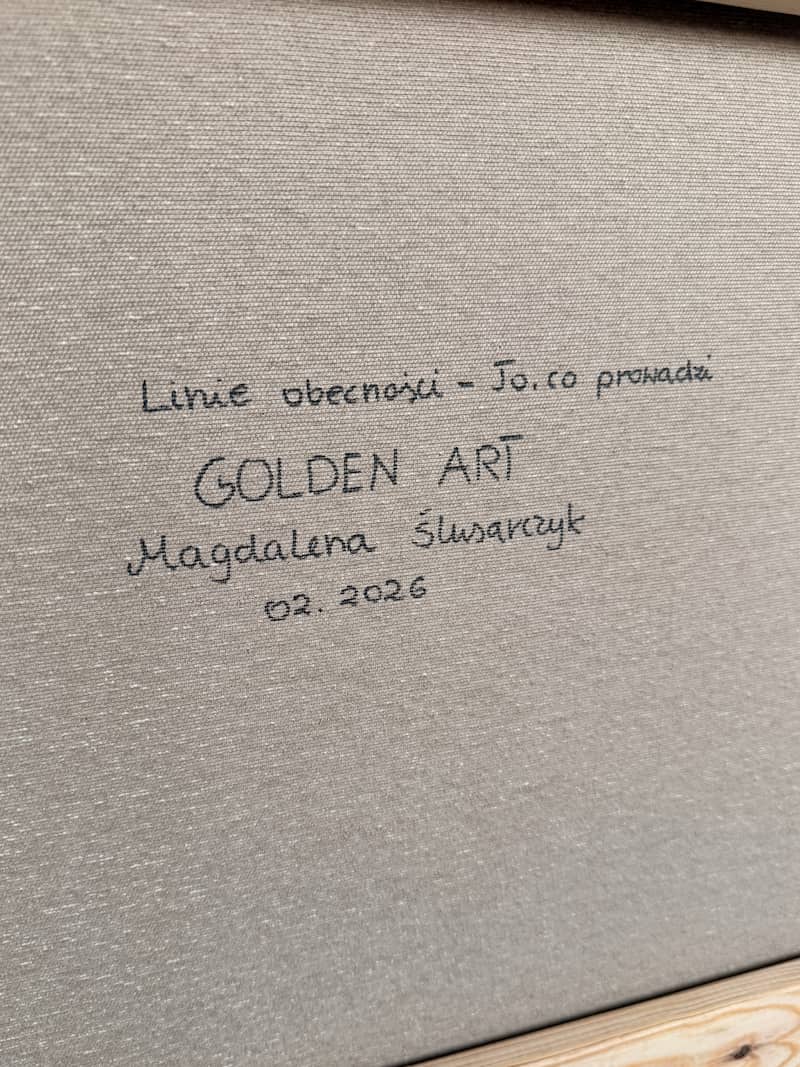 Linie obecności - To, co prowadzi
GOLDEN ART
Magdalena Ślusarczyk
02. 2026